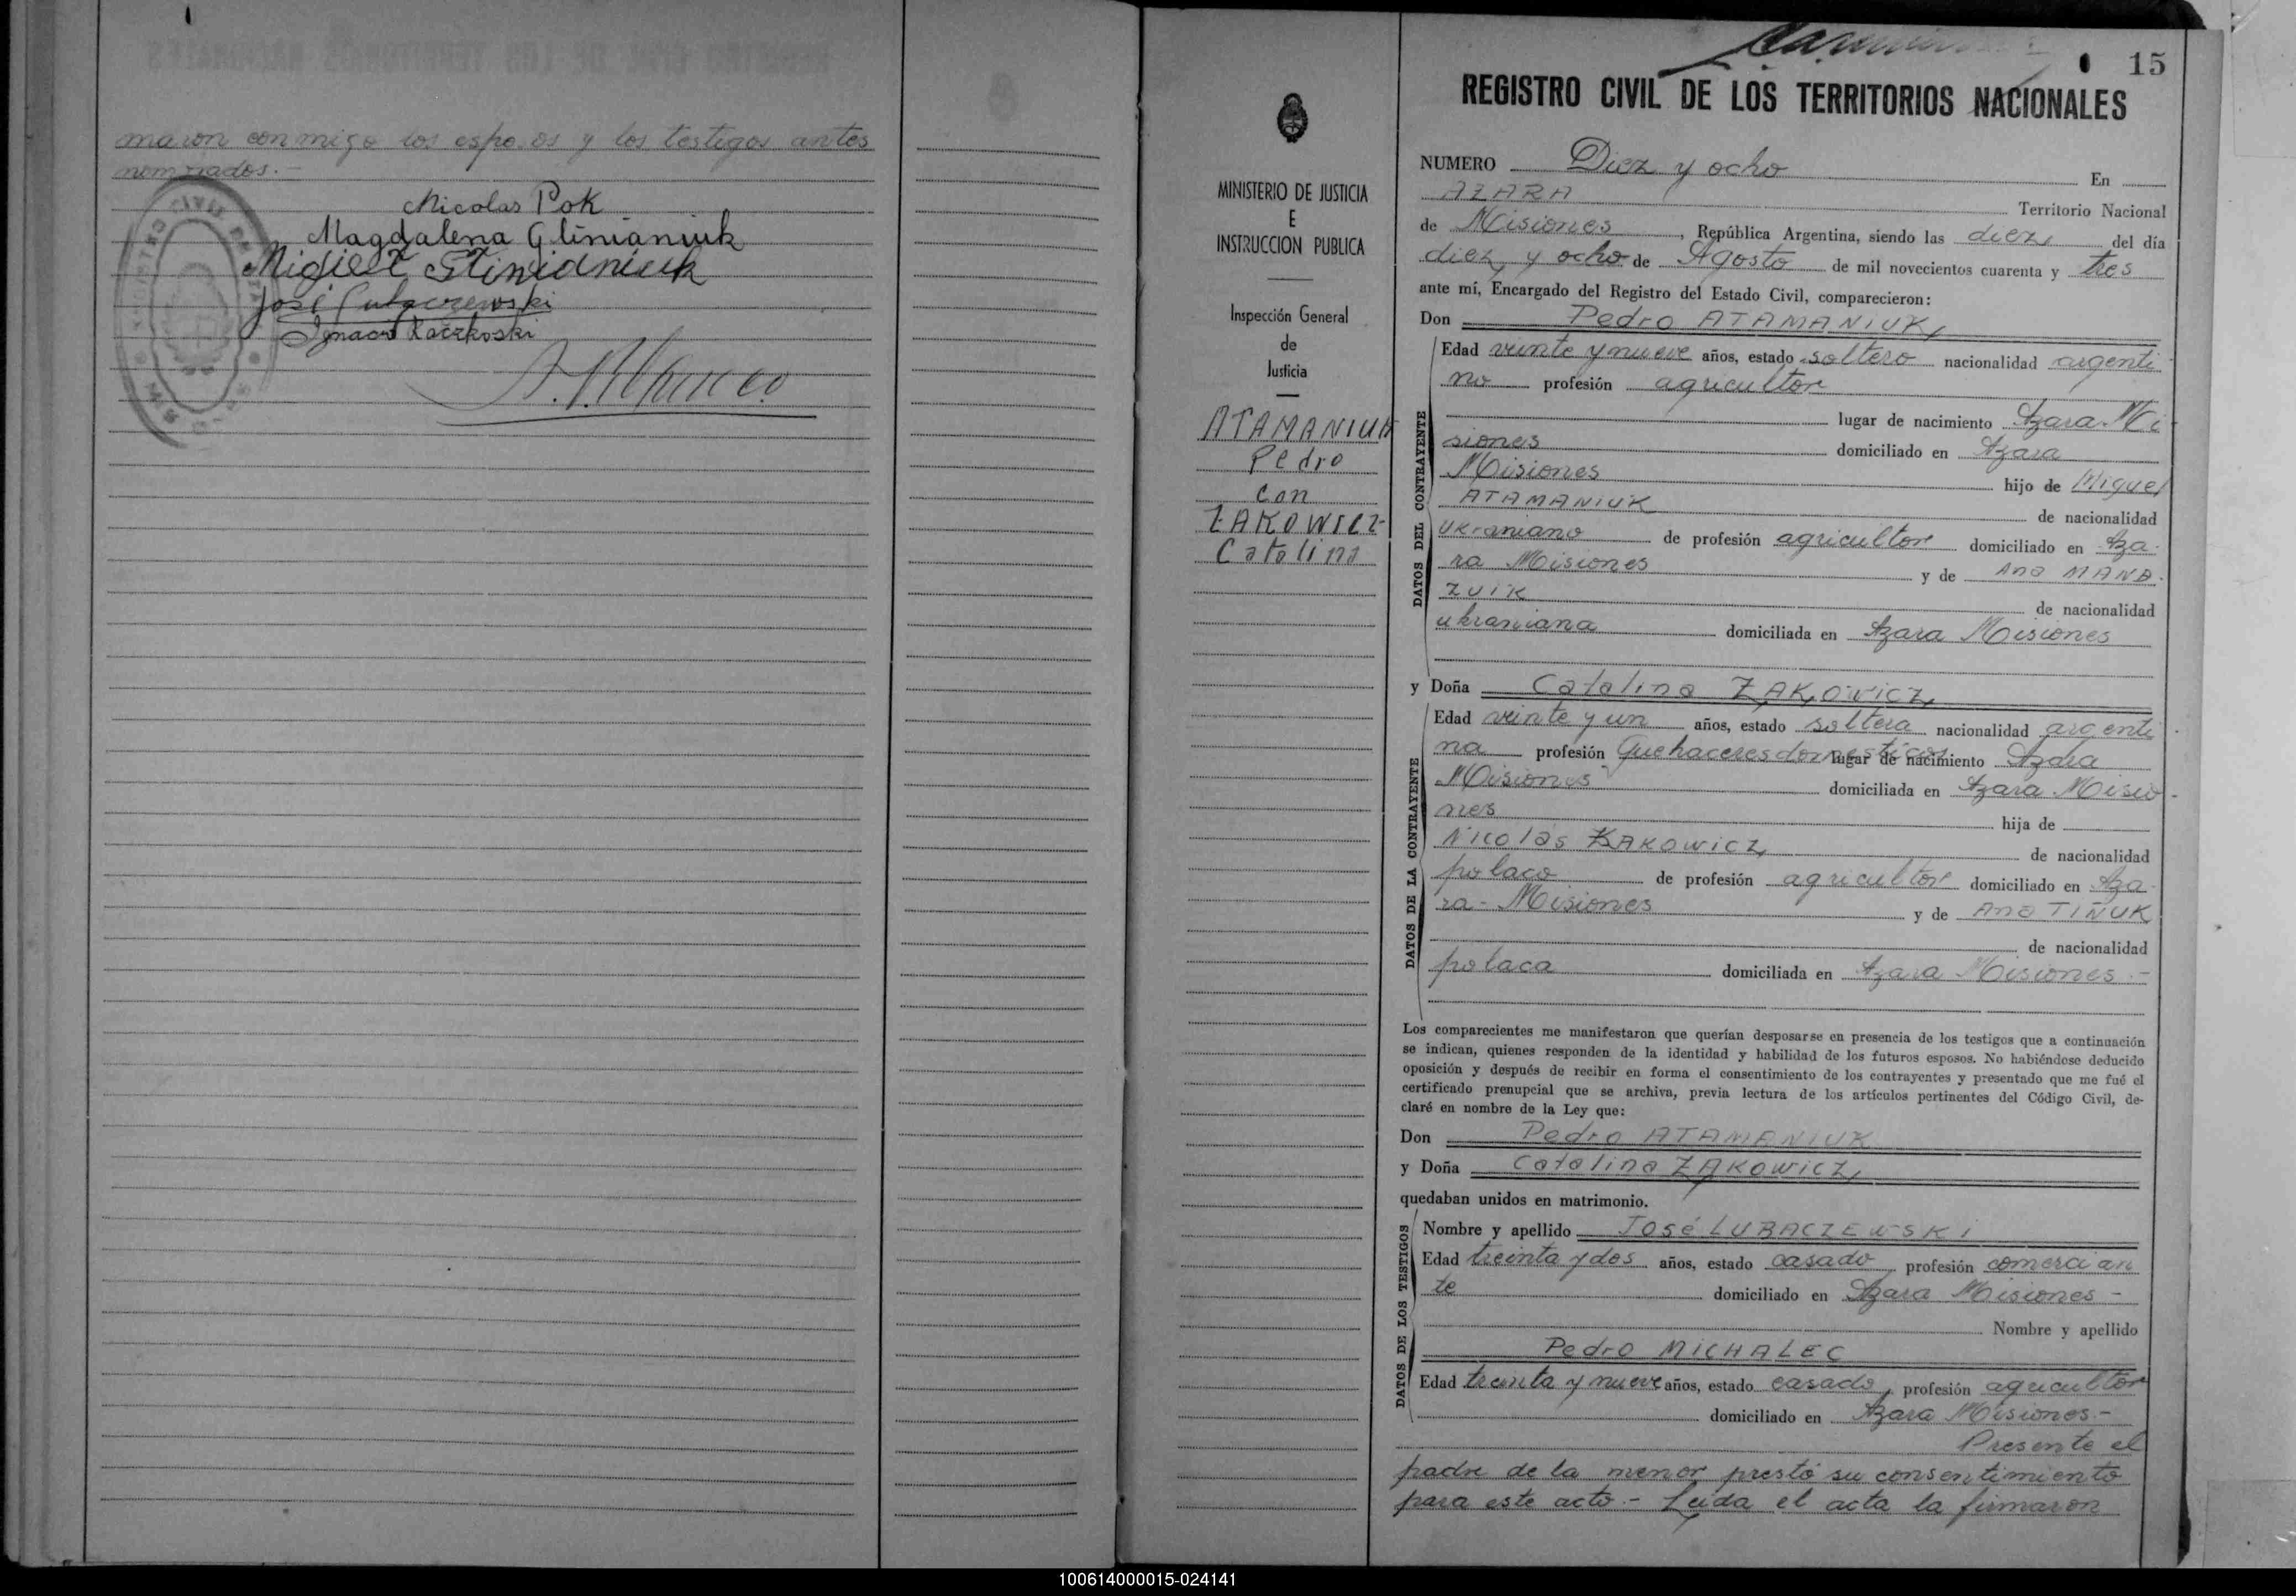 maron conmigo los esposos y los testigos antes
nombrados.-
Nicolas Pok
Magdalena Glinianiuk
Miguel Glinianiuk
José Lubaczewski
Ignacio Kaczkoski
MINISTERIO DE JUSTICIA
E
INSTRUCCION PUBLICA
Inspección General
de
Justicia
ATAMANIUK
Pedro
con
ZAKOWICZ
Catalina
15
REGISTRO CIVIL DE LOS TERRITORIOS NACIONALES
NUMERO Diez y ocho En
AZARA Territorio Nacional
de Misiones, República Argentina, siendo las diez del día
diez y ocho de Agosto de mil novecientos cuarenta y tres
ante mí, Encargado del Registro del Estado Civil, comparecieron:
Don Pedro ATAMANIUK,
DATOS DEL CONTRAYENTE
Edad veinte y nueve años, estado soltero nacionalidad argenti
no profesión agricultor
lugar de nacimiento Azara Mi
siones domiciliado en Azara
Misiones hijo de Miguel
ATAMANIUK de nacionalidad
ukraniano de profesión agricultor domiciliado en Aza-
ra Misiones y de Ana MAND-
ZUIK de nacionalidad
ukraniana domiciliada en Azara Misiones
y Doña Catalina ZAKOWICZ,
DATOS DE LA CONTRAYENTE
Edad veinte y un años, estado soltera nacionalidad argenti
na profesión Quehaceres domesticos lugar de nacimiento Azara
Misiones domiciliada en Azara Misio-
nes hija de
Nicolás ZAKOWICZ, de nacionalidad
polaco de profesión agricultor domiciliado en Aza-
ra - Misiones y de Ana TIÑUK
de nacionalidad
polaca domiciliada en Azara Misiones.-
Los comparecientes me manifestaron que querían desposarse en presencia de los testigos que a continuación
se indican, quienes responden de la identidad y habilidad de los futuros esposos. No habiéndose deducido
oposición y después de recibir en forma el consentimiento de los contrayentes y presentado que me fué el
certificado prenupcial que se archiva, previa lectura de los artículos pertinentes del Código Civil, de-
claré en nombre de la Ley que:
Don Pedro ATAMANIUK
y Doña Catalina ZAKOWICZ,
quedaban unidos en matrimonio.
DATOS DE LOS TESTIGOS
Nombre y apellido José LUBACZEWSKI
Edad treinta y dos años, estado casado, profesión comercian
te domiciliado en Azara Misiones -
Nombre y apellido
Pedro MICHALEC
Edad treinta y nueve años, estado casado, profesión agricultor
domiciliado en Azara Misiones.-
Presente el
padre de la menor prestó su consentimiento
para este acto.- Leida el acta la firmaron
100614000015-024141